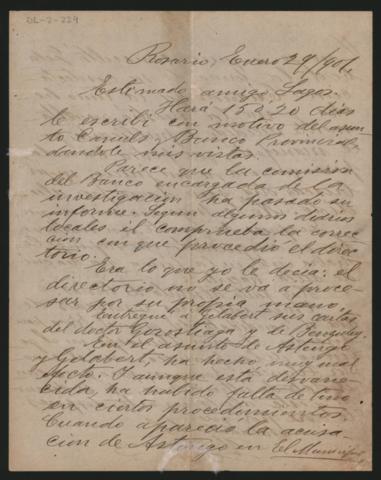 DL-2-229
Rosario, Enero 29/901.
Estimado amigo Lagos.
Hará 15 ó 20 dias
le escribí con motivo del asun-
to Caniels y Banco Provincial
dandole mis vistas.
Parece que la comision
del Banco encargada de la
investigacion ha pasado su
informe. Segun algunos diarios
locales él comprueba la correc-
cion con que procedió el direc-
torio.
Era lo que yo le decia: el
directorio no se va a proce-
sar por su propia mano.
Entregué a Gelabert sus cartas
del doctor Gorostiaga y de
En el asunto de Astengo
y Gelabert, ha hecho muy mal
efecto. I aunque está desvane-
cida, ha habido falta de tino
en ciertos procedimientos.
Cuando apareció la acusa-
cion de Astengo en El Municipio